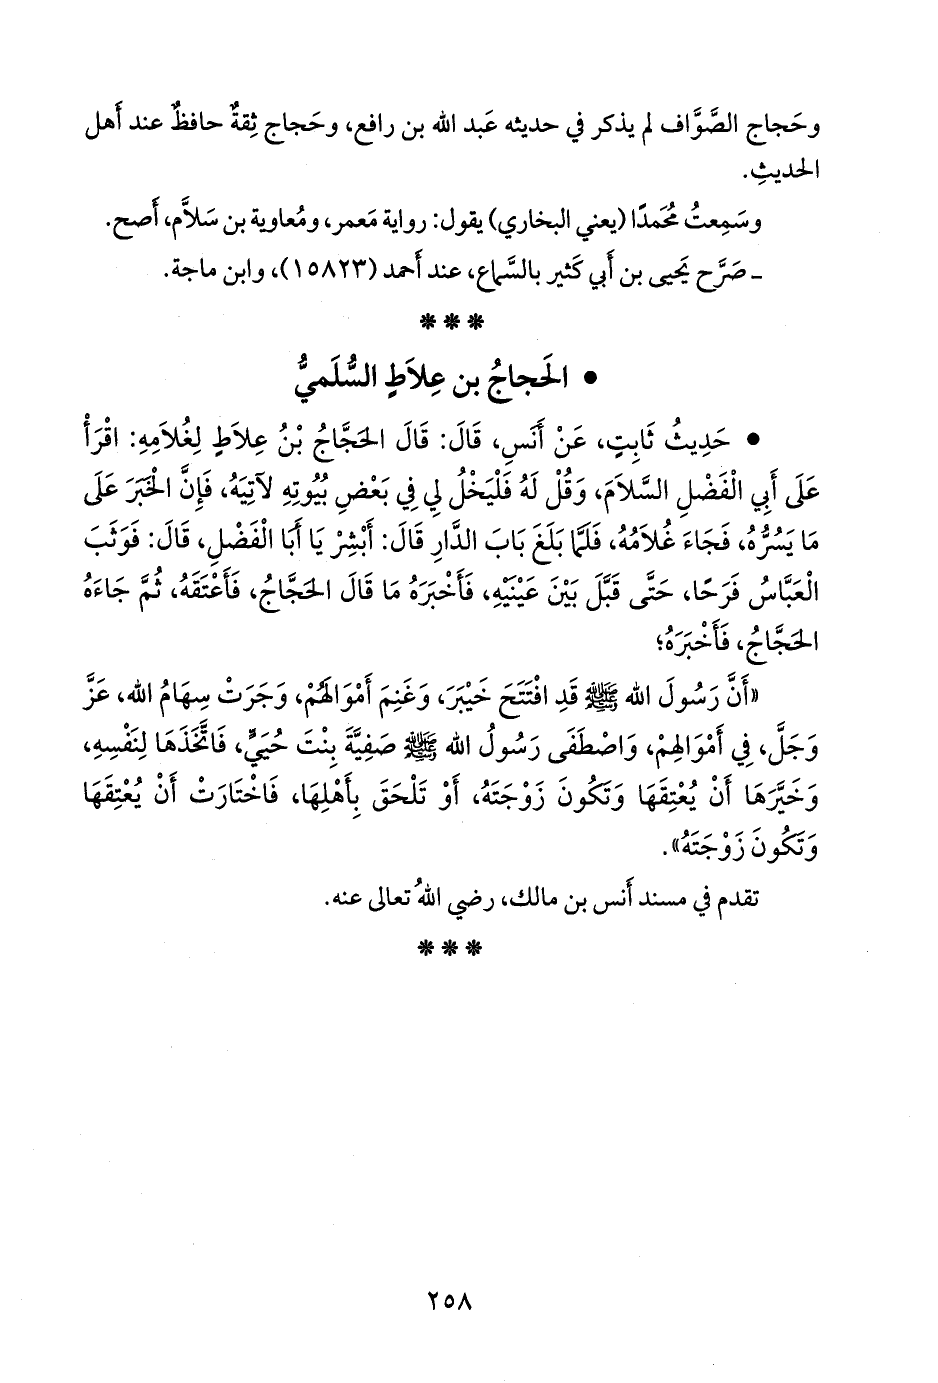 وحَجاج الصَّوَّاف لم يذكر في حديثه عَبد الله بن رافع، وحَجاج ثِقةٌ حافظٌ عند أَهل
الحديثِ.
وسَمِعتُ مُحَمدًا (يعني البخاري) يقول: رواية مَعمر، ومُعاوية بن سَلاَّم، أَصح.
ـ صَرَّح يَحيى بن أَبي كَثير بالسَّماع، عند أَحمد (١٥٨٢٣)، وابن ماجة.
* * *
• الحَجاجُ بن عِلاَطٍ السُّلَميُّ
• حَدِيثُ ثَابِتٍ، عَنْ أَنَسٍ، قَالَ: قَالَ الحَجَّاجُ بْنُ عِلاَطٍ لِغُلاَمِهِ: اقْرَأْ
عَلَى أَبِي الْفَضْلِ السَّلاَمَ، وَقُلْ لَهُ فَلْيَخْلُ لِي فِي بَعْضِ بُيُوتِهِ لآتِيَهُ، فَإِنَّ الْخَبَرَ عَلَى
مَا يَسُرُّهُ، فَجَاءَ غُلاَمُهُ، فَلَمَّا بَلَغَ بَابَ الدَّارِ قَالَ: أَبْشِرْ يَا أَبَا الْفَضْلِ، قَالَ: فَوَثَبَ
الْعَبَّاسُ فَرَحًا، حَتَّى قَبَّلَ بَيْنَ عَيْنَيْهِ، فَأَخْبَرَهُ مَا قَالَ الحَجَّاجُ، فَأَعْتَقَهُ، ثُمَّ جَاءَهُ
الحَجَّاجُ، فَأَخْبَرَهُ؛
«أَنَّ رَسُولَ الله ﷺ قَدِ افْتَتَحَ خَيْبَرَ، وَغَنِمَ أَمْوَالَهُمْ، وَجَرَتْ سِهَامُ الله، عَزَّ
وَجَلَّ، فِي أَمْوَالِهِمْ، وَاصْطَفَى رَسُولُ الله ﷺ صَفِيَّةَ بِنْتَ حُيَيٍّ، فَاتَّخَذَهَا لِنَفْسِهِ،
وَخَيَّرَهَا أَنْ يُعْتِقَهَا وَتَكُونَ زَوْجَتَهُ، أَوْ تَلْحَقَ بِأَهْلِهَا، فَاخْتَارَتْ أَنْ يُعْتِقَهَا
وَتَكُونَ زَوْجَتَهُ».
تقدم في مسند أَنس بن مالك، رضي اللهُ تعالى عنه.
* * *
٢٥٨